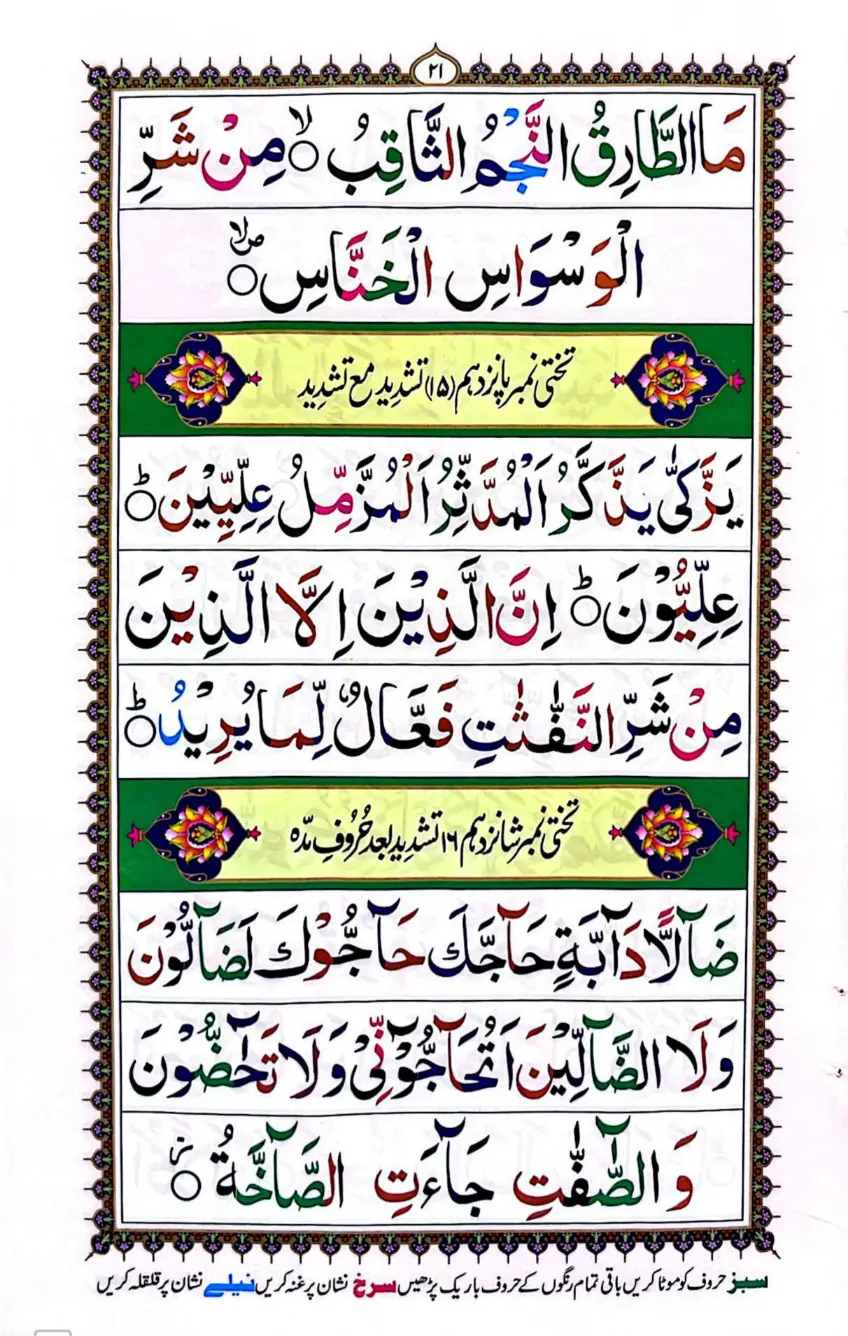 ۲۱
مَا الطَّارِقُ النَّجْمُ الثَّاقِبُ ۙ○ مِنْ شَرِّ
الْوَسْوَاسِ الْخَنَّاسِ ○ صلا
تختی نمبر پانزدہم (۱۵) تشدِید مع تشدِید
يَزَّكّٰى يَذَّكَّرُ اَلْمُدَّثِّرُ اَلْمُزَّمِّلُ عِلِّيِّيْنَ ○ؕ
عِلِّيُّوْنَ ○ؕ اِنَّ الَّذِيْنَ اِلَّا الَّذِيْنَ
مِنْ شَرِّ النَّفّٰثٰتِ فَعَّالٌ لِّمَا يُرِيْدُ ○ؕ
تختی نمبر شانزدہم ۱۶ تشدِید بعد حُرُوفِ مدّہ
ضَآلًّا دَآبَّةٍ حَآجَّكَ حَآجُّوْكَ لَضَآلُّوْنَ
وَلَا الضَّآلِّيْنَ اَتُحَآجُّوْٓنِّىْ وَلَا تَحٰٓضُّوْنَ
وَالصّٰٓفّٰتِ جَآءَتِ الصَّآخَّةُ ○ ز
سبز حروف کو موٹا کریں باقی تمام رنگوں کے حروف باریک پڑھیں سرخ نشان پر غنہ کریں نیلے نشان پر قلقلہ کریں